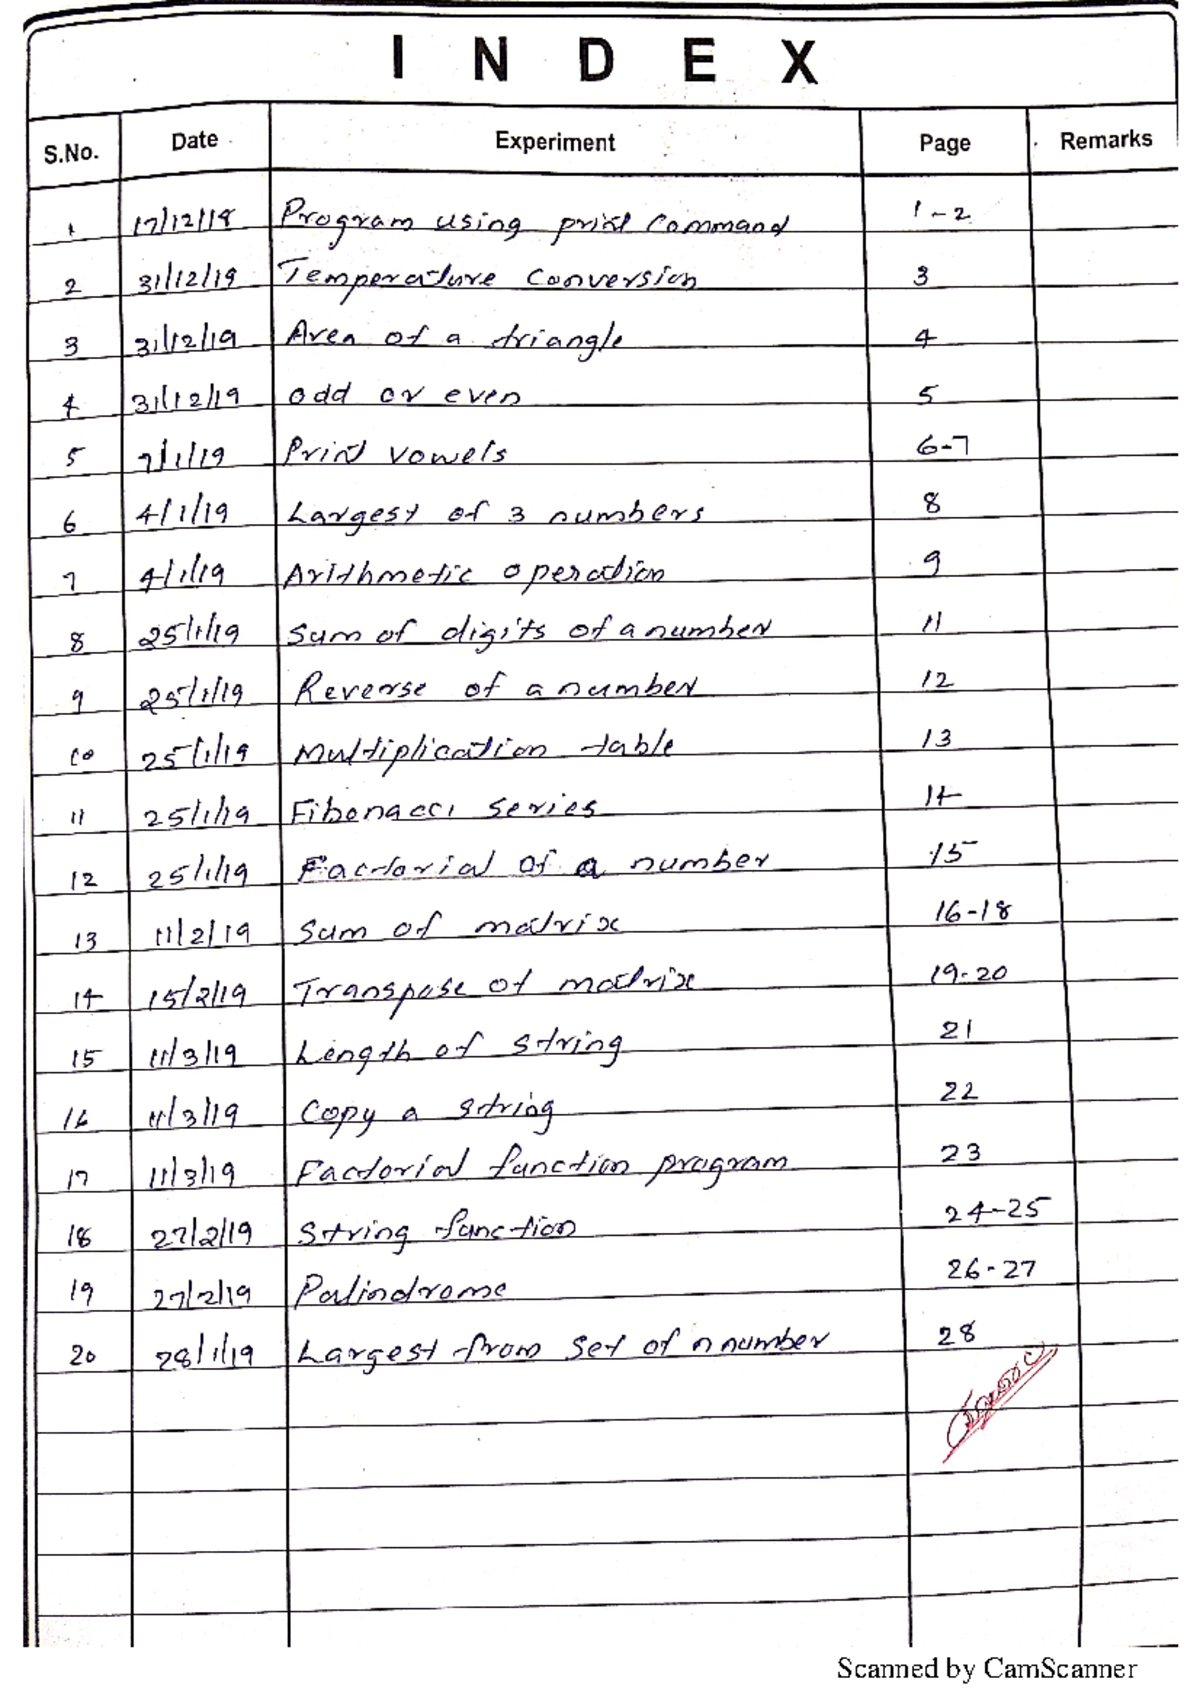 INDEX
S.No. Date Experiment Page Remarks
1 17/12/18 Program using print Command 1-2
2 31/12/19 Temperature Conversion 3
3 31/12/19 Area of a triangle 4
4 31/12/19 odd or even 5
5 7/1/19 Print vowels 6-7
6 4/1/19 Largest of 3 numbers 8
7 4/1/19 Arithmetic operation 9
8 25/1/19 Sum of digits of a number 11
9 25/1/19 Reverse of a number 12
10 25/1/19 Multiplication table 13
11 25/1/19 Fibonacci series 14
12 25/1/19 Factorial of a number 15
13 11/2/19 Sum of matrix 16-18
14 15/2/19 Transpose of matrix 19-20
15 11/3/19 Length of string 21
16 11/3/19 Copy a string 22
17 11/3/19 Factorial function program 23
18 27/2/19 String function 24-25
19 27/2/19 Palindrome 26-27
20 28/1/19 Largest from set of n number 28
Scanned by CamScanner